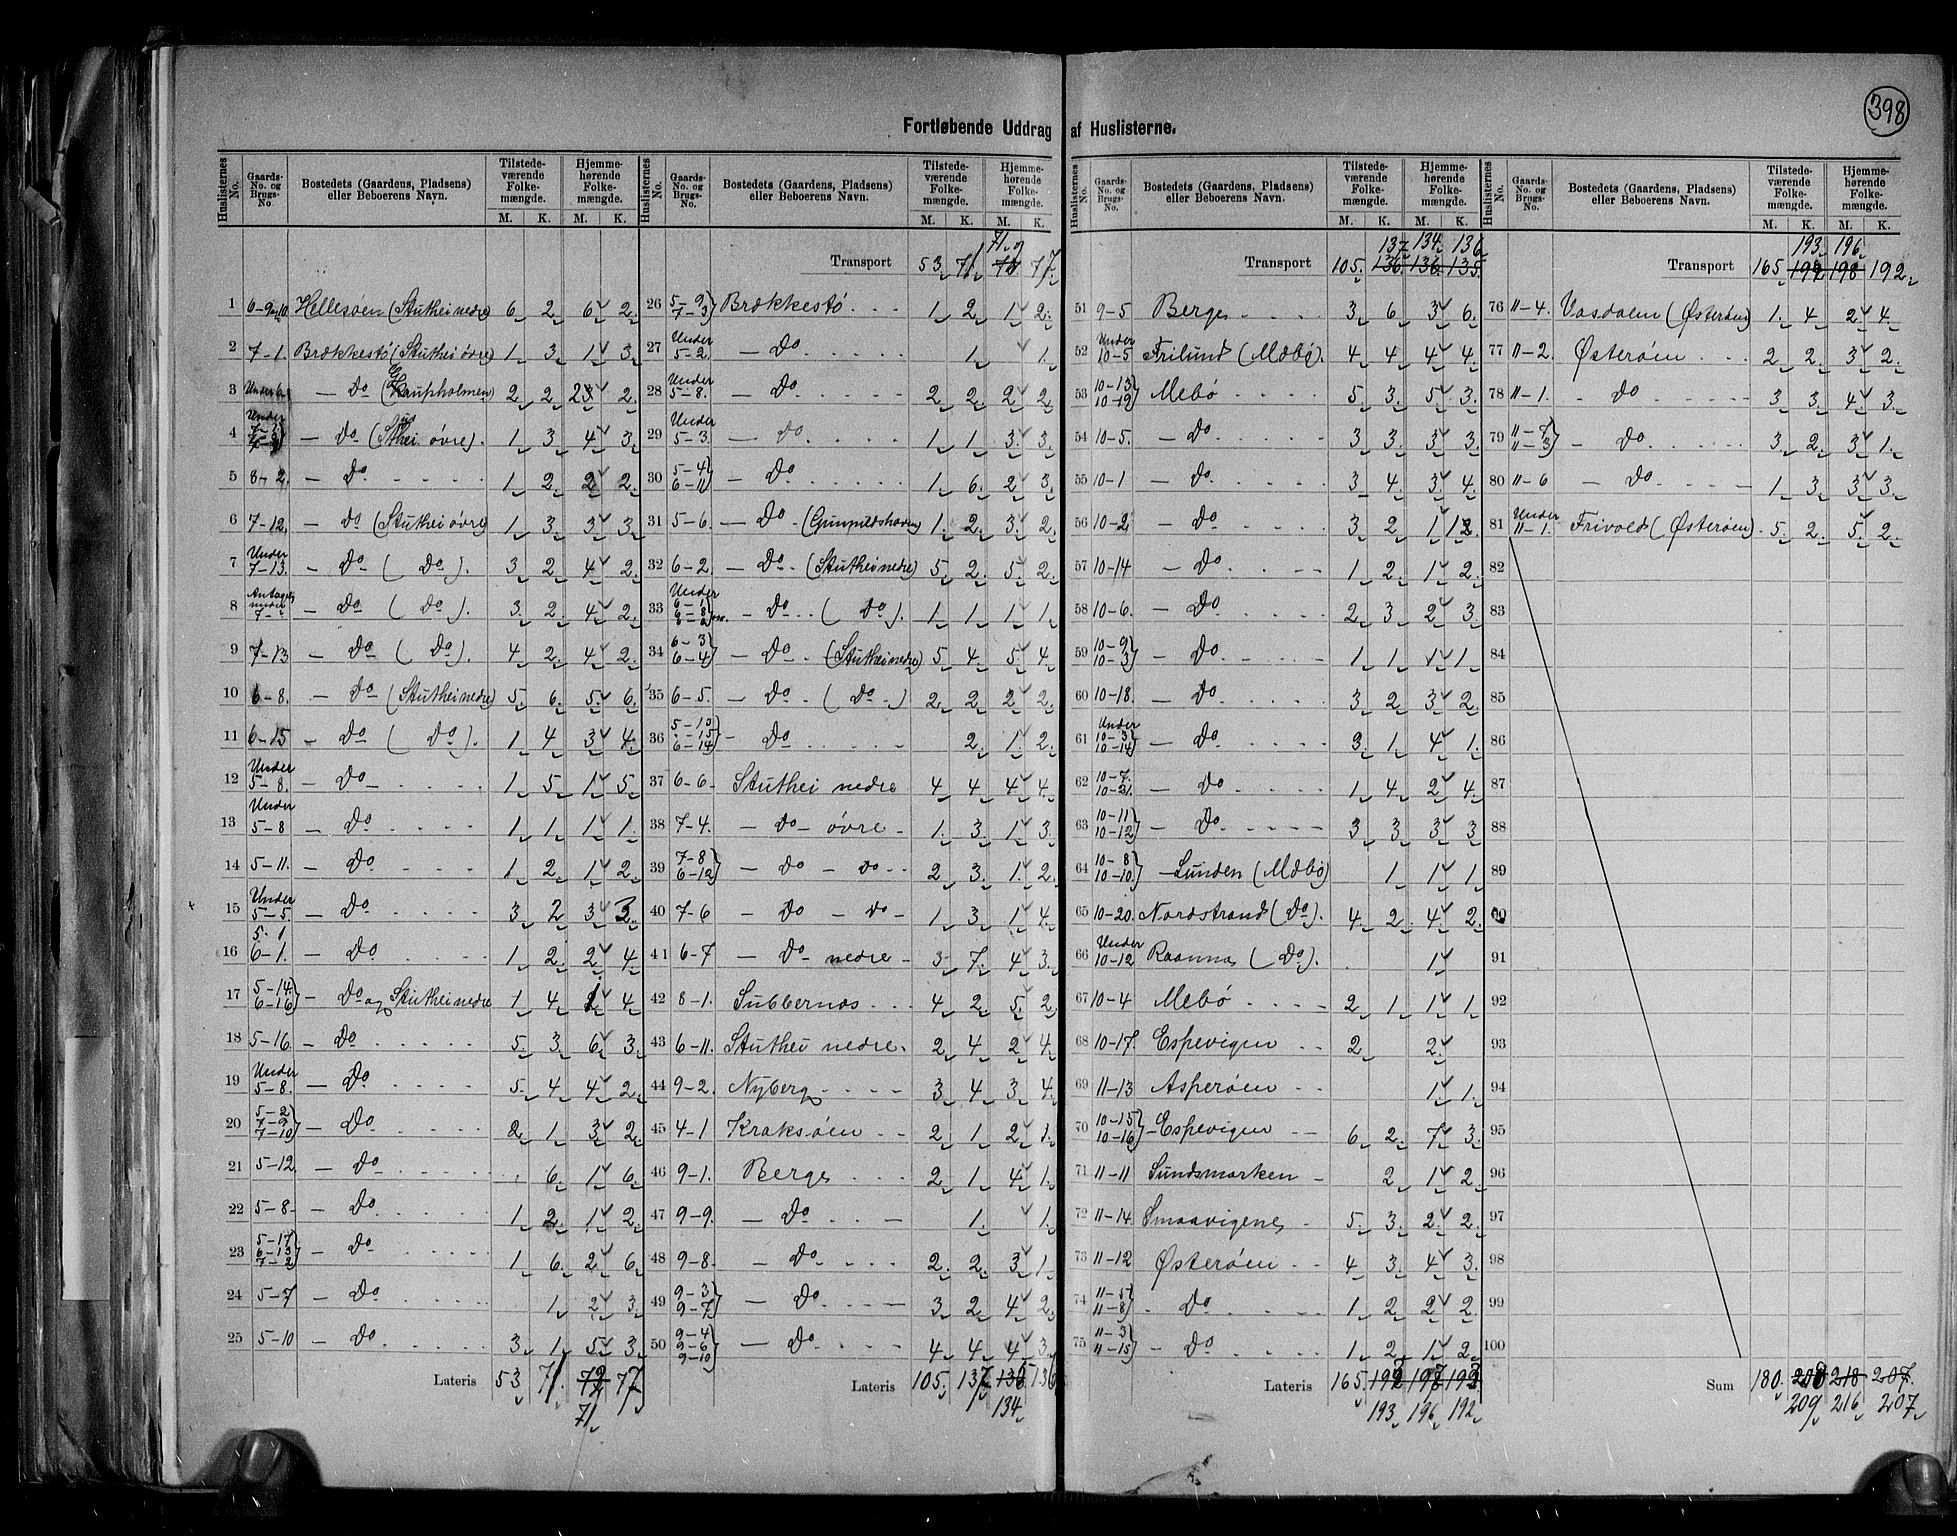 398
Fortløbende Uddrag af Huslisterne.
Huslisternes No. Gaards-No. og Brugs-No. Bostedets (Gaardens, Pladsens) eller Beboerens Navn. Tilstedeværende Folkemængde. M. K. Hjemmehørende Folkemængde. M. K.
1 6-9,10 Hellesøen (Stuthei nedre) 6 2 6 2
2 7-1. Brækkestø (Stuthei øvre) 1 3 1 3
3 Under 6 — Do (Kaupholmen) 2 2 2 2
4 Under 7-1 7-3 — Do (Sthei øvre). 1 3 4 3
5 8-2. — Do 1 2 2 2
6 7-12. — Do (Stuthei øvre) 1 3 3 3
7 Under 7-13. — Do (Do). 3 2 4 2
8 7- — Do (Do). 3 2 4 2
9 7-13 — Do (Do). 4 2 4 2
10 6-8. — Do (Stuthei nedre) 5 6 5 6
11 6-15 — Do (Do). 1 4 3 4
12 Under 5-8. — Do 1 5 1 5
13 Under 5-8 — Do 1 1 1 1
14 5-11. — Do 1 2 1 2
15 Under 5-5. — Do 3 2 3 3
16 5-1 6-1. — Do 1 2 2 4
17 5-14. 6-16 — Do og Stuthei nedre 1 4 1 4
18 5-16. — Do 5 3 6 3
19 Under 5-8. — Do 5 4 4 2
20 5-2 7-9 7-10 — Do 2 1 3 2
21 5-12. — Do 6 1 6
22 5-8. — Do 1 2 1 2
23 5-17 6-13 7-2 — Do 1 6 2 6
24 5-7 — Do 1 2 3
25 5-10 — Do 3 1 5 3
Lateris 53 71 72 77
71
71
Transport 53 71 72 77
26 5-9 7-3 Brækkestø 1 2 1 2
27 Under 5-2. — Do 1 1
28 Under 5-8. — Do 2 2 2 2
29 Under 5-3. — Do 1 1 3 3
30 5-4 6-11 — Do 1 6 2 3
31 5-6. — Do (Gunnildshavn) 1 2 3 2
32 6-2. — Do (Stuthei nedre) 5 2 5 2
33 Under 6-1 — Do (Do). 1 1 1 1
34 6-3 6-4 — Do (Stuthei nedre) 5 4 5 4
35 6-5. — Do (Do) 2 2 2 2
36 5-13 5-15 6-14 — Do 2 1 2
37 6-6. Stuthei nedre 4 4 4 4
38 7-4. — Do — øvre 1 3 1 3
39 7-8 6-12 — Do — Do 2 3 1 2
40 7-6 — Do — Do 1 3 1 4
41 6-7 — Do — nedre 3 7 4 3
42 8-1. Subbernæs 4 2 5 2
43 6-11. Stuthei nedre 2 4 2 4
44 9-2. Nyberg 3 4 3 4
45 4-1 Kraksøen 2 1 2 1
46 9-1. Berge 2 1 4 1
47 9-9. — Do 1 1
48 9-8. — Do 2 2 3 1
49 9-3 9-7 — Do 3 2 4 2
50 9-4 9-6 9-10 — Do 4 4 4 3
Lateris 105 137 136
134
137 134 136
Transport 105 136 136 135
51 9-5 Berge 3 6 3 6
52 Under 10-5 Frilund (Mæbø). 4 4 4 4
53 10-13 10-19 Mebø 5 3 5 3
54 10-5. — Do 3 3 3 3
55 10-1 — Do 3 4 3 4
56 10-2 — Do 3 2 1 2
57 10-14 — Do 1 2 1 2
58 10-6. — Do 2 3 2 3
59 10-9 10-3 — Do 1 1 1 1
60 10-18. — Do 3 2 3 2
61 Under 10-3 10-14 — Do 3 1 4 1
62 10-7. 10-21. — Do 1 4 2 4
63 10-11 10-12 — Do 3 3 3 3
64 10-8 10-10 — Lunden (Mæbø) 1 1 1
65 10-20. Nordstrand (Do). 4 2 4 2
66 Under 10-12 Raannas (Do). 1
67 10-4 Mebø 2 1 1 1
68 10-17. Espevigen 2 2
69 11-13 Asperøen 1 1
70 10-15 10-16 Espevigen 6 2 7 3
71 11-11 Sundsmarken 2 1 2
72 11-14. Smaavigene 5 3 2 2
73 11-12 Østerøen 4 3 4 3
74 11-5 11-8 — Do 1 2 2 2
75 11-3 11-15 — Do 1 2 1 2
Lateris 165 192 197 193
193 196 192
193 196
Transport 165 192 198 192
76 11-4. Vasdalen (Østerøen) 1 4 2 4
77 11-2. Østerøen 2 2 3 2
78 11-1. — Do 3 3 4 3
79 11-7 11-3 — Do 3 2 3 1
80 11-6 — Do 1 3 3 3
81 Under 11-1. Frivold (Østerøen) 5 2 5 2
82
83
84
85
86
87
88
89
90
91
92
93
94
95
96
97
98
99
100
Sum 180 208 218 207
209 216 207